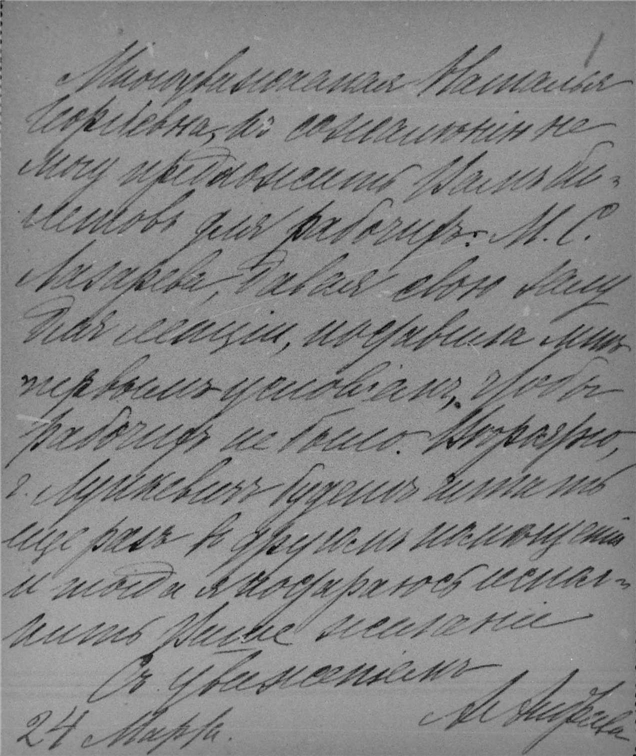 Многоуважаемая Наталья
Сергѣевна, къ сожалѣнію не
могу предложить Вамъ би-
летовъ для рабочихъ. М. С.
Лазарева, давая свою залу
для лекціи, поставила мнѣ
первымъ условіемъ, чтобы
рабочихъ не было. Вѣроятно,
г. Лункевичъ будетъ читать
еще разъ въ другомъ помѣщеніи
и тогда я постараюсь испол-
нить Ваше желаніе
Съ уваженіемъ
24 Марта.